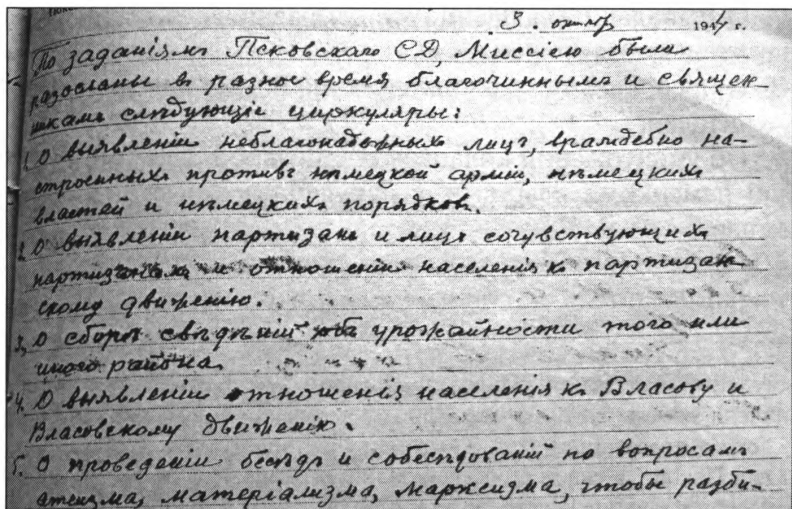 3. октября 1944 г.
По заданіямъ Псковскаго СД, Миссіею были
разосланы в разное время благочиннымъ и священ-
никамъ слѣдующіе циркуляры:
1. О выявленіи неблагонадежныхъ лицъ, враждебно на-
строенныхъ противъ нѣмецкой арміи, нѣмецкихъ
властей и нѣмецкихъ порядковъ.
2. О выявленіи партизанъ и лицъ сочувствующихъ
партизанамъ и отношеніи населенія къ партизан-
скому движенію.
3. О сборѣ свѣдѣній объ урожайности того или
иного района.
4. О выявленіи отношенія населенія къ Власову и
Власовскому движенію.
5. О проведеніи бесѣдъ и собесѣдованій по вопросамъ
атеизма, матеріализма, марксизма, чтобы разби-